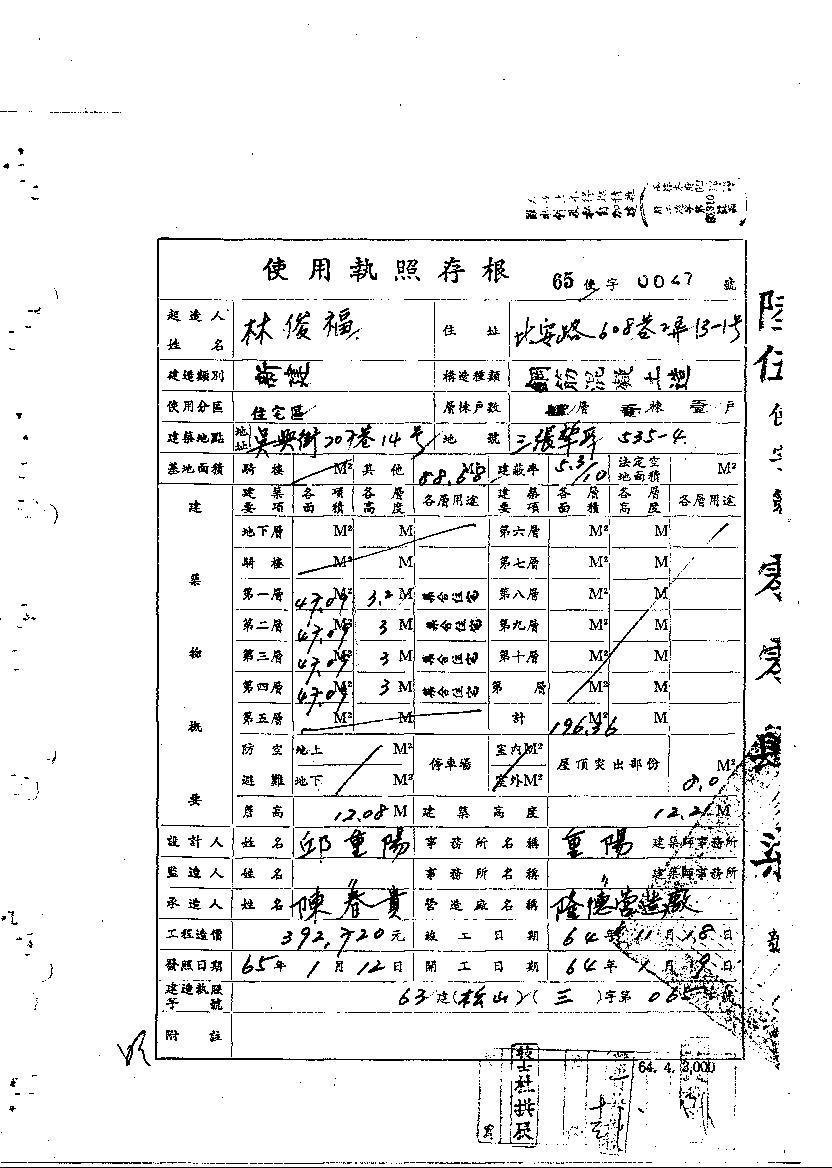 使用執照存根 65 使字 0047 號
起造人姓名 林俊福 住址 北安路608巷2弄13-1号
建造類別 新建 構造種類 鋼筋混凝土造
使用分區 住宅區 層棟戶數 層 壹棟 壹戶
建築地點 地址 吳興街207巷14号 地號 三張犂段 535-4
基地面積 騎樓 M² 其他 88.68 M² 建蔽率 5.3/10 法定空地面積 M²
建築物概要 建築要項 各項面積 各層高度 各層用途 建築要項 各層面積 各層高度 各層用途
地下層 M² M 第六層 M² M
騎樓 M² M 第七層 M² M
第一層 47.09 M² 3.2 M 集合住宅 第八層 M² M
第二層 47.09 M² 3 M 集合住宅 第九層 M² M
第三層 47.09 M² 3 M 集合住宅 第十層 M² M
第四層 47.09 M² 3 M 集合住宅 第 層 M² M
第五層 M² M 計 196.36 M² M
防空 地上 M² 停車場 室內M² 屋頂突出部份 M²
避難 地下 M² 室外M² 8.0
簷高 12.08 M 建築高度 12.21 M
設計人 姓名 邱重陽 事務所名稱 重陽 建築師事務所
監造人 姓名 〃 事務所名稱 〃 建築師事務所
承造人 姓名 陳春貴 營造廠名稱 隆德營造廠
工程造價 392,720 元 竣工日期 64年 11月 18日
發照日期 65年 1月 12日 開工日期 64年 1月 9日
建造執照字號 63建(松山)(三)字第 065 號
附註
64. 4. 3,000